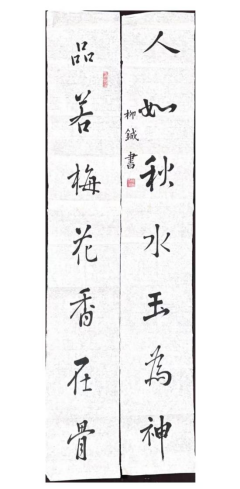 人如秋水玉為神
品若梅花香在骨
柳鍼書